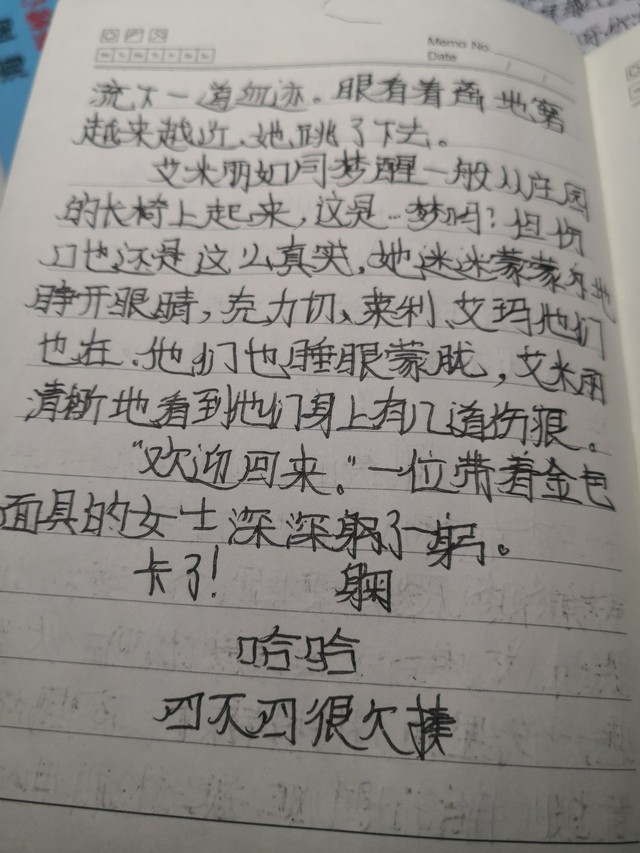 Memo No.
Date
流下一道血迹。眼看着离地窖
越来越近，她跳了下去。
艾米丽如同梦醒一般从庄园
的长椅上起来，这是…梦吗？但伤
口也还是这么真实，她迷迷蒙蒙地
睁开眼睛，克力切、莱利、艾玛他们
也在，他们也睡眼蒙胧，艾米丽
清晰地看到他们身上有几道伤痕。
“欢迎回来。”一位带着金色
面具的女士深深躬了一躬。
卡了！ 鞠
哈哈
四不四很欠揍